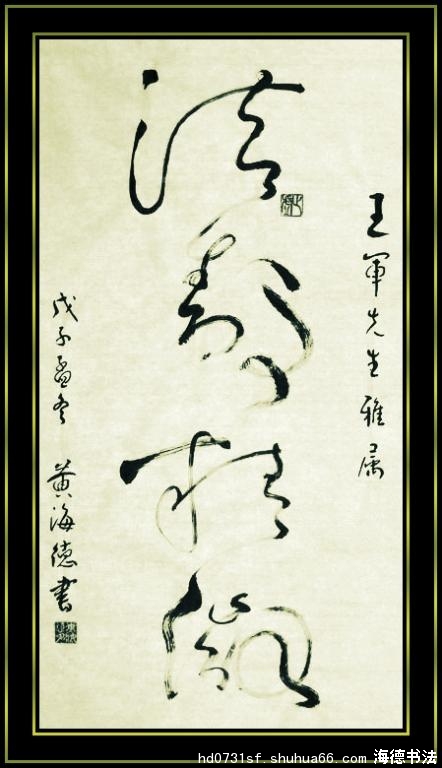 王軍先生雅属
洁静精微
戊子孟冬 黄海德書
hd0731sf.shuhua66.com 海德书法